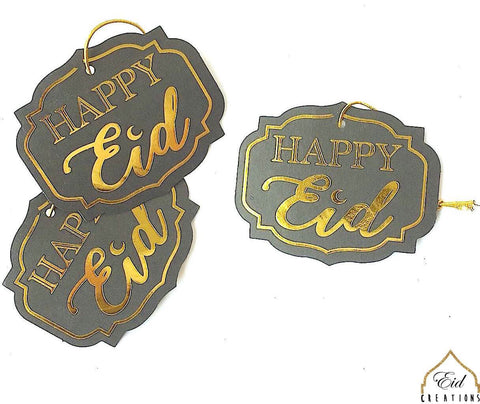 HAPPY
Eid
HAPPY
Eid
HAPPY
Eid
Eid
CREATIONS